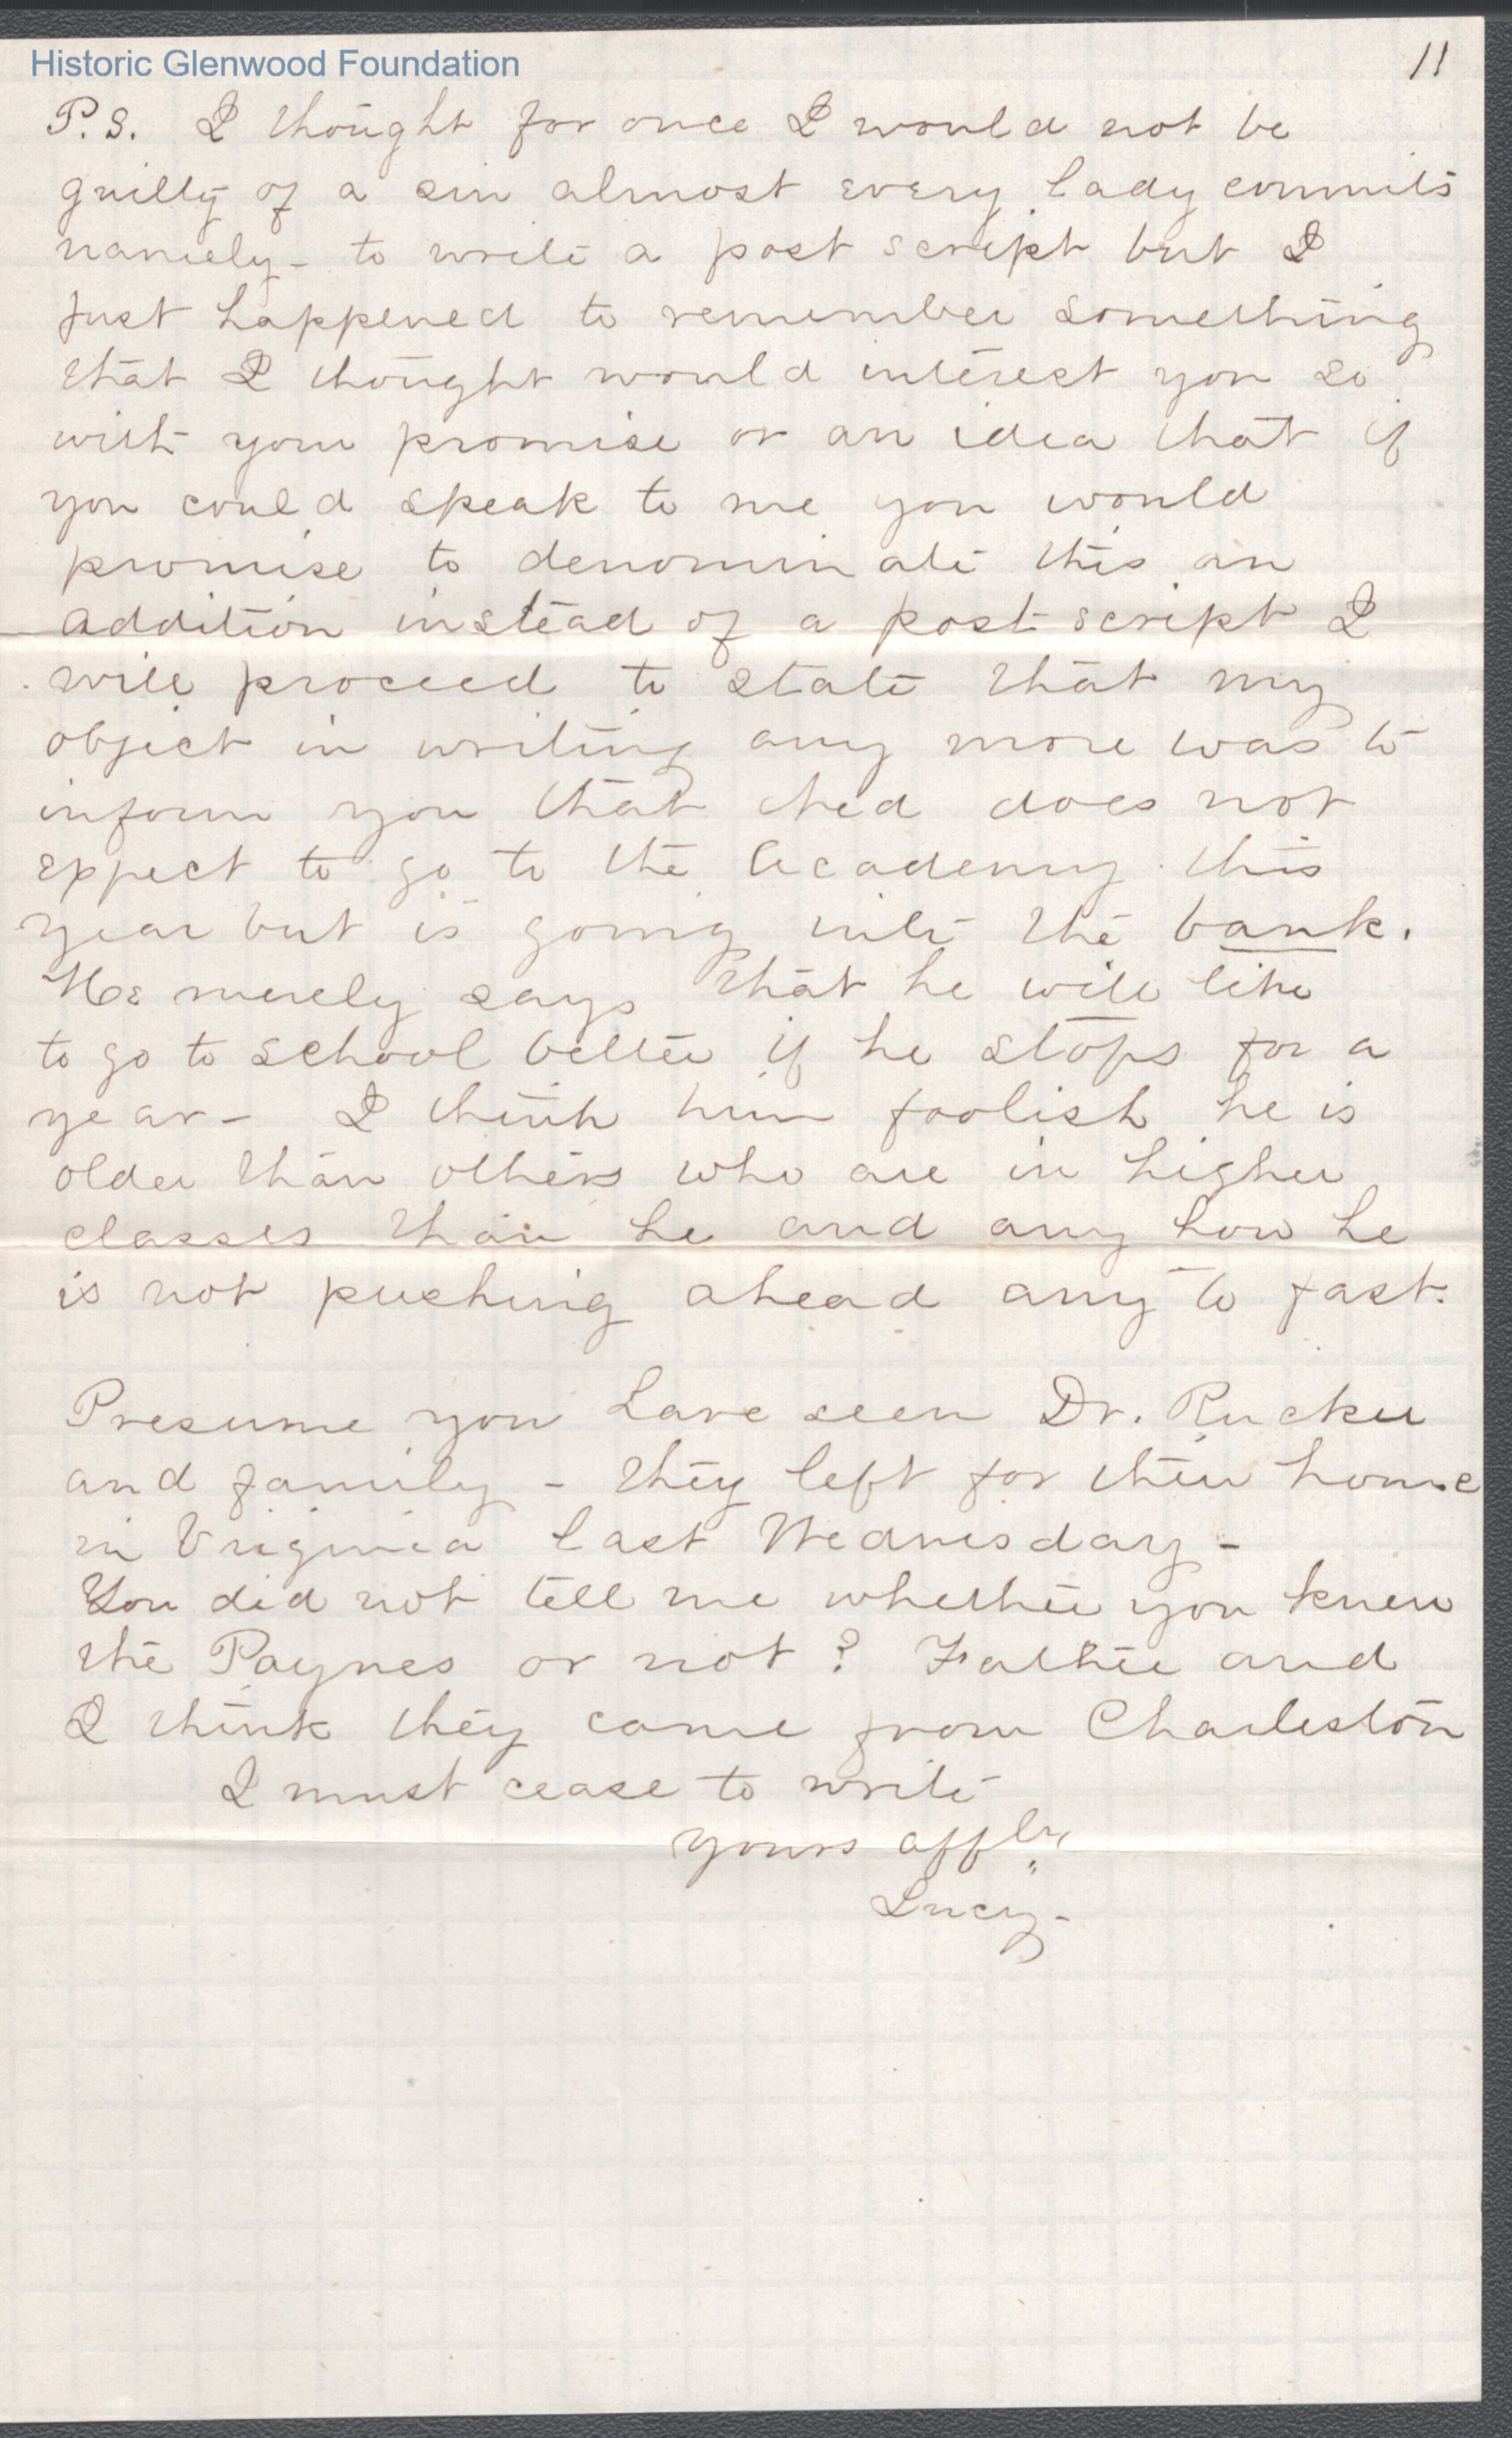 Historic Glenwood Foundation
11
P.S. I thought for once I would not be
guilty of a sin almost every lady commits
namely - to write a post script but I
just happened to remember something
that I thought would interest you so
with your promise or an idea that if
you could speak to me you would
promise to denominate this an
addition instead of a post script I
will proceed to state that my
object in writing any more was to
inform you that does not
expect to go to the Academy this
year but is going into the bank.
He merely says that he will like
to go to school better if he stops for a
year - I think him foolish he is
older than others who are in higher
classes than he and any how he
is not pushing ahead any to fast.
Presume you have seen Dr. Rucker
and family - they left for their home
in Virginia last Wednesday -
You did not tell me whether you knew
the Paynes or not? Father and
I think they came from Charleston
I must cease to write
Yours affly
Lucy -